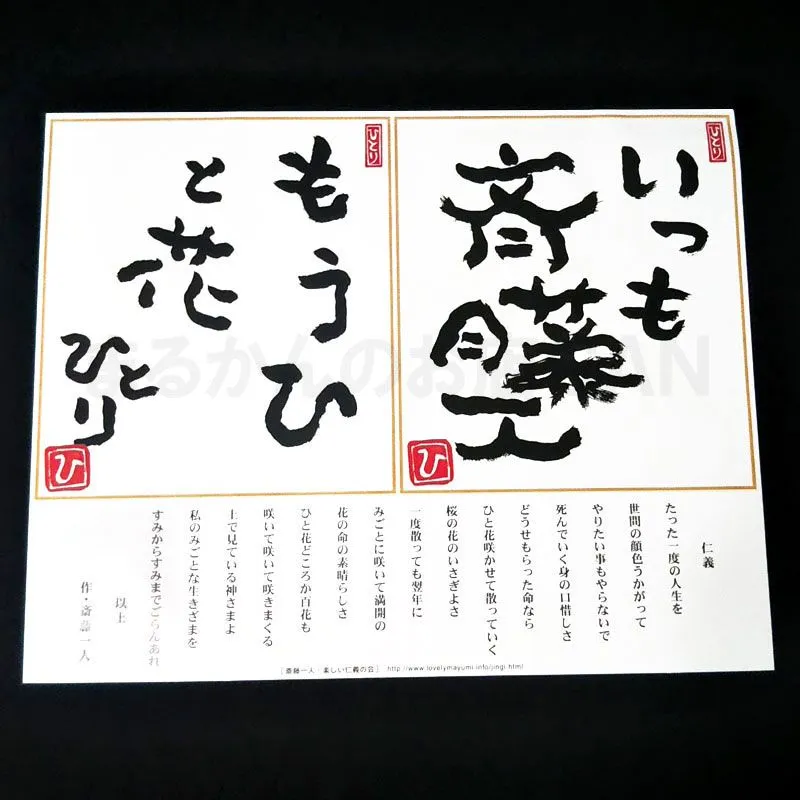 ひとり
いつも
斉藤一人
ひ
ひとり
もうひ
と花
ひとり
ひ
仁義
たった一度の人生を
世間の顔色うかがって
やりたい事もやらないで
死んでいく身の口惜しさ
どうせもらった命なら
ひと花咲かせて散っていく
桜の花のいさぎよさ
一度散っても翌年に
みごとに咲いて満開の
花の命の素晴らしさ
ひと花どころか百花も
咲いて咲いて咲きまくる
上で見ている神さまよ
私のみごとな生きざまを
すみからすみまでごらんあれ
以上
作・斎藤一人
［斎藤一人・楽しい仁義の会］ http://www.lovelymayumi.info/jingi.html